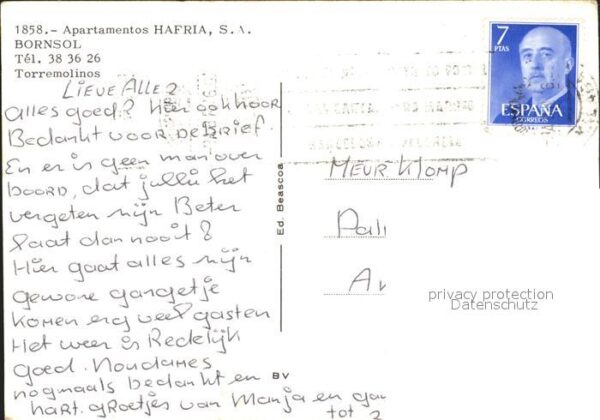 1858.- Apartamentos HAFRIA, S. A.
BORNSOL
Tél. 38 36 26
Torremolinos
LIEVE ALLE 2
alles goed? hier ook hoor.
Bedankt voor de Brief.
En er is geen man over
boord, dat jullie het
vergeten zijn Beter
laat dan nooit?
Hier gaat alles zijn
gewone gangetje
komen erg veel gasten
Het weer is Redelijk
goed. Nou dames
nogmaals bedankt en
hart. groetjes van Manja en
tot
Ed. Beascoa
BV
7
PTAS
ESPAÑA
CORREOS
MEUR KLOMP
Pali
Av
privacy protection
Datenschutz